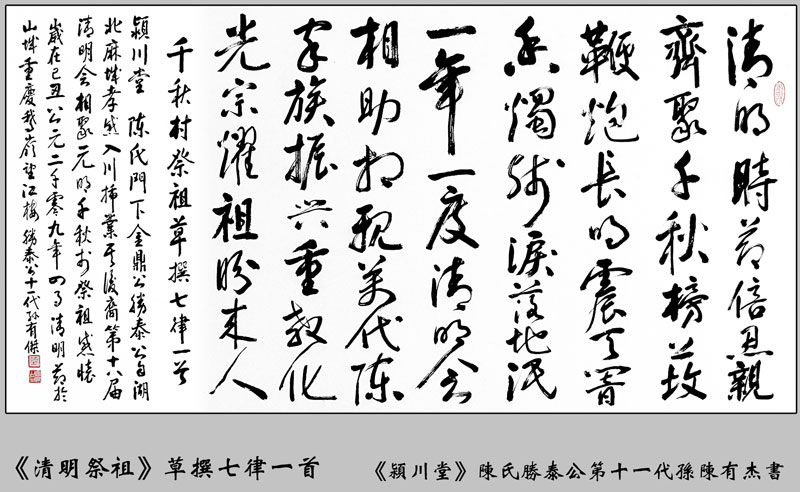 清明時節倍思親
齊聚千秋榜
鞭炮長明震天霄
香燭残淚落地泯
一年一度清明会
相助相親萬代陳
家族振兴重教化
光宗耀祖盼来人
千秋村祭祖草撰七律一首
潁川堂 陳氏門下金鼎公勝泰公自湖
北麻城孝感入川插業其後裔第十六届
清明会相聚元明千秋村祭祖感懷
歲在己丑公元二千零九年四月清明節於
山城重慶鵝嶺望江樓 勝泰公十一代孫有傑
《清明祭祖》草撰七律一首
《潁川堂》陳氏勝泰公第十一代孫陳有杰書